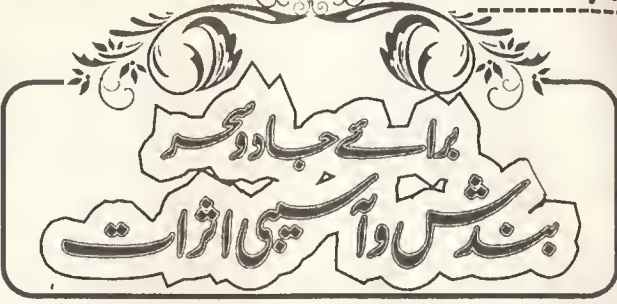 برائے جادو و سحر
بندش و آسیبی اثرات